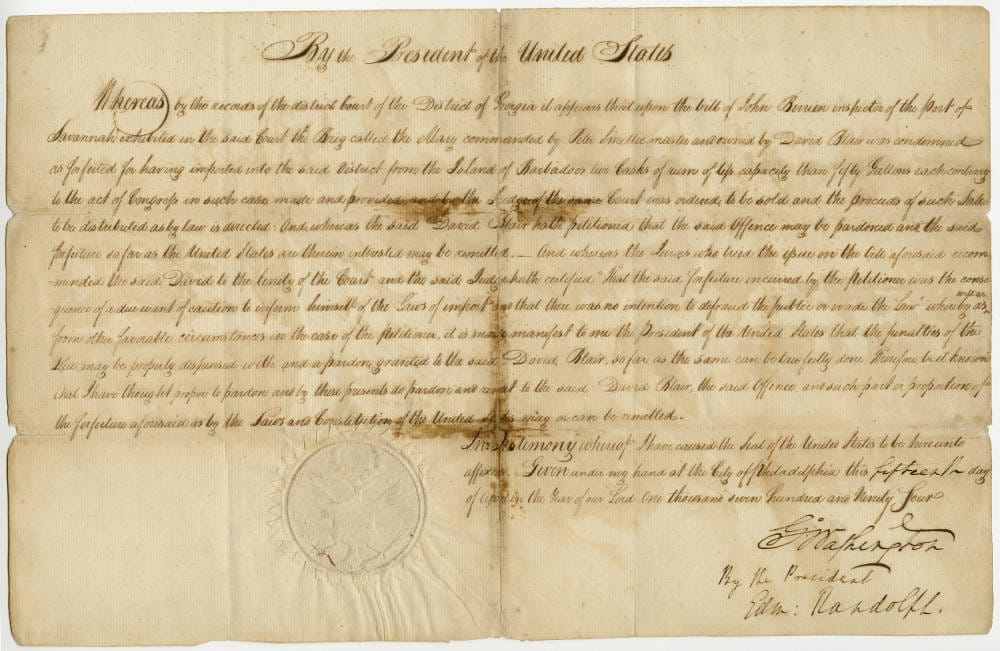 By the President of the United States
Whereas by the records of the district Court of the District of Georgia it appears that upon the bill of John Berrien inspector of the Port of
Savannah exhibited in the said Court the Brig called the Mary commanded by Peter Smellie master and owned by David Blair was condemned
as forfeited for having imported into the said District from the Island of Barbadoes two Casks of rum of less capacity than fifty Gallons each contrary
to the act of Congress in such case made and provided, and by the Judge of the same Court was ordered to be sold and the proceeds of such Sale
to be distributed as by law is directed: And whereas the said David Blair hath petitioned that the said Offence may be pardoned and the said
forfeiture so far as the United States are therein interested may be remitted. — And whereas the Jurors who tried the issue on the bill aforesaid recom
mended the said David to the lenity of the Court and the said Judge hath certified "That the said forfeiture incurred by the Petitioner was the conse
quence of a due want of caution to inform himself of the Laws of impost and that there was no intention to defraud the public or evade the Law" whereby as well as
from other favorable circumstances in the case of the Petitioner, it is made manifest to me the President of the United States that the penalties of the
Law may be properly dispensed with and a pardon granted to the said David Blair, so far as the same can be lawfully done. Therefore be it known
that I have thought proper to pardon and by these presents do pardon and remit to the said David Blair, the said Offence and such part or proportion of
the forfeiture aforesaid as by the Laws and Constitution of the United States may or can be remitted.
In Testimony whereof I have caused the Seal of the United States to be hereunto
affixed. Given under my hand at the City of Philadelphia this fifteenth day
of April in the Year of our Lord One thousand seven hundred and Ninety Four
Go Washington
By the President
Edm: Randolph.